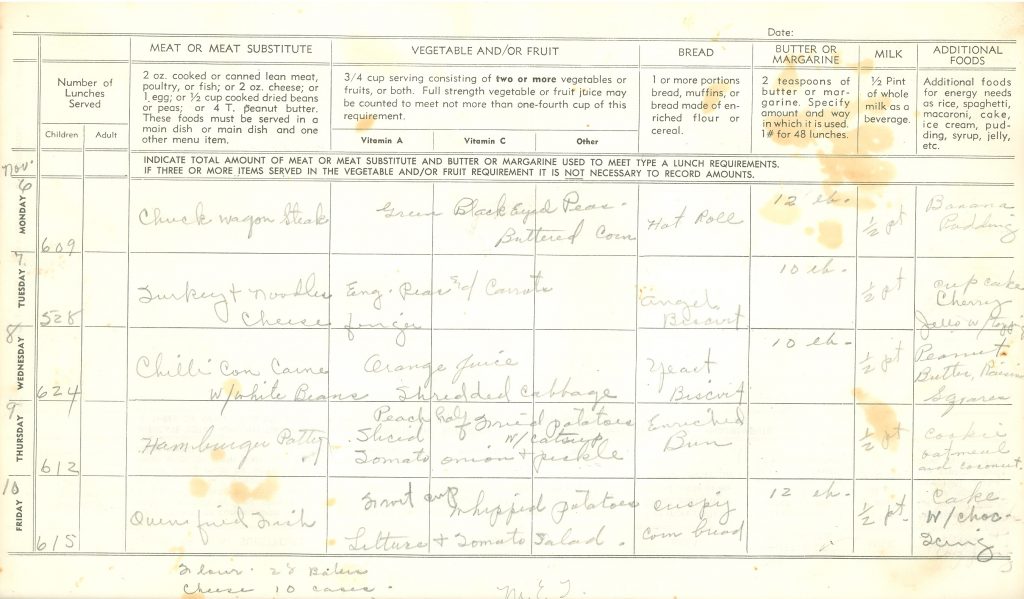 Date:
MEAT OR MEAT SUBSTITUTE
VEGETABLE AND/OR FRUIT
BREAD
BUTTER OR MARGARINE
MILK
ADDITIONAL FOODS
Number of
Lunches
Served
Children
Adult
2 oz. cooked or canned lean meat,
poultry, or fish; or 2 oz. cheese; or
1 egg; or ½ cup cooked dried beans
or peas; or 4 T. peanut butter.
These foods must be served in a
main dish or main dish and one
other menu item.
3/4 cup serving consisting of two or more vegetables or
fruits, or both. Full strength vegetable or fruit juice may
be counted to meet not more than one-fourth cup of this
requirement.
Vitamin A
Vitamin C
Other
1 or more portions
bread, muffins, or
bread made of en-
riched flour or
cereal.
2 teaspoons of
butter or mar-
garine. Specify
amount and way
in which it is used.
1# for 48 lunches.
½ Pint
of whole
milk as a
beverage.
Additional foods
for energy needs
as rice, spaghetti,
macaroni, cake,
ice cream, pud-
ding, syrup, jelly,
etc.
INDICATE TOTAL AMOUNT OF MEAT OR MEAT SUBSTITUTE AND BUTTER OR MARGARINE USED TO MEET TYPE A LUNCH REQUIREMENTS.
IF THREE OR MORE ITEMS SERVED IN THE VEGETABLE AND/OR FRUIT REQUIREMENT IT IS NOT NECESSARY TO RECORD AMOUNTS.
Nov
6
MONDAY
609
Chuck Wagon Steak
Green Black Eyed Peas
Buttered Corn
Hot Roll
12 lb.
½ pt
Banana
Pudding
7
TUESDAY
528
Turkey + Noodles
Cheese finger
Eng. Peas Carrots
Angel
Biscuit
10 lb.
½ pt
Cup cake
Cherry
Jello w/
8
WEDNESDAY
624
Chilli Con Carne
w/ White Beans
Orange Juice
Shredded Cabbage
Yeast
Biscuit
10 lb.
½ pt
Peanut
Butter, Raisin
Squares
9
THURSDAY
612
Hamburger Patty
Peach half Fried potatoes
Sliced w/ catsup
Tomato onion + pickle
Enriched
Bun
½ pt
Cookie
oatmeal
and coconut
10
FRIDAY
615
Oven fried Fish
Fruit cup Whipped potatoes
Lettuce + Tomato Salad.
Crispy
Corn bread
12 lb.
½ pt.
Cake
w/ choc-
Icing
Flour 28
Cheese 10 cases.